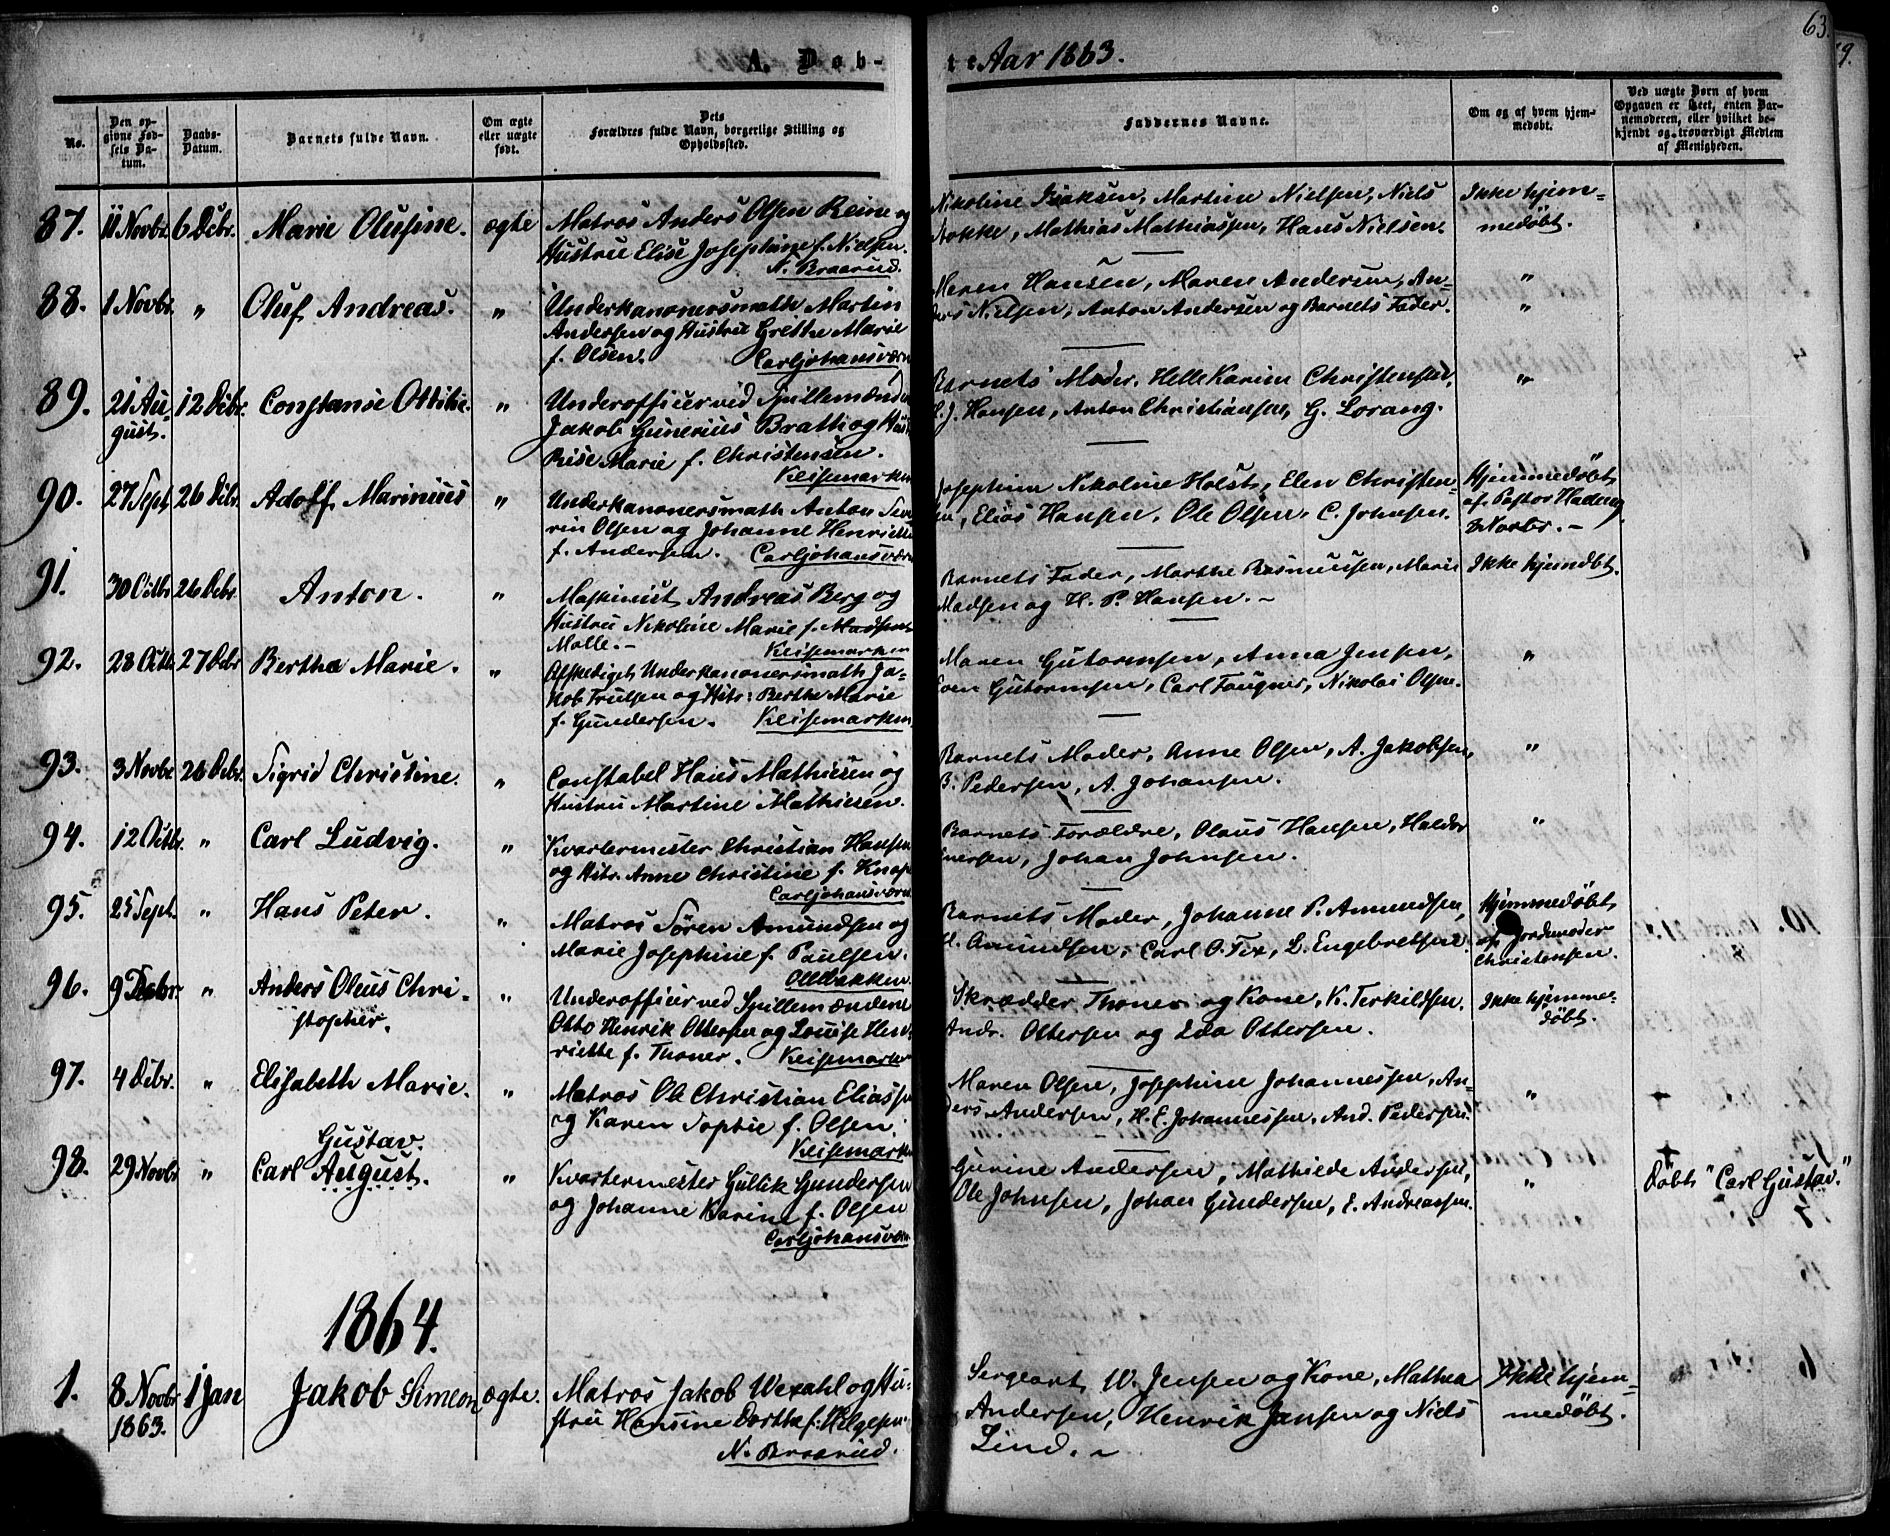 63.
9.
A. Døb-
te Aar 1863.
No.
Den opgivne Fødsels Datum.
Daabs-Datum.
Barnets fulde Navn.
Om ægte eller uægte født.
Dets Forældres fulde Navn, borgerlige Stilling og Opholdssted.
Faddernes Navne.
Om og af hvem hjemmedøbt.
Ved uægte Børn af hvem Opgaven er skeet, enten Barnemoderen, eller hvilket bekjendt og troværdigt Medlem af Menigheden.
87. 11 Novbr. 6 Debr. Marie Olusine. ægte Matros Anders Olsen Reine og
Hustru Elise Josephine f. Nielsen.
N. Braarud.
Nikoline Isaksen, Martin Nielsen, Niels
Mathias Mathiassen, Hans Nielsen.
Ikke hjem=
medøbt.
88. 1 Novbr. " Oluf Andreas. " Underkanonersmath Martin
Andersen og Hustru Grethe Marie
f. Olsen. Carljohansværn
Maren Hansen, Maren Andersen, An=
ders Nielsen, Anton Andersen og Barnets Fader.
"
"
89. 21 Au= 12 Debr. Constanse Ottilie. " Underofficier ved Spillemændene
gust. Jakob Gunerius Bratti og Hust
Rise Marie f. Christensen.
Keisemarken
Barnets Moder, Helle Karine Christensen,
J. Hansen, Anton Christiansen, G. Lorang.
"
90. 27 Sept. 26 Debr. Adolf Marinius " Underkanonersmath Anton Seve
rin Olsen og Johanne Henriette
f. Andersen. Carljohansværn
Josephine Nikoline Holst, Elen Christen=
sen, Elias Hansen, Ole Olsen, C. Johnsen.
Hjemmedøbt
af Pastor
Novbr. -
91. 30 Octbr. 26 Debr. Anton. " Maskinist Andreas Berg og
Hustru Nikoline Marie f. Madsen
Molle. - Keisemarken
Barnets Fader, Marthe Rasmussen, Marie
Madsen og H. P. Hansen. -
Ikke hjemdbt.
92. 28 Octbr. 27 Debr. Bertha Marie. " Afskediget Underkanonersmath Ja=
kob Trulsen og Hstr: Berthe Marie
f. Gundersen. Keisemarken
Maren Gutormsen, Anna Jensen,
Gutormsen, Carl Faugner, Nikolai Olsen.
"
93. 3 Novbr. 26 Debr. Sigrid Christine. " Constabel Hans Mathiesen og
Hustru Martine Mathiesen.
Barnets Moder, Anne Olsen, A. Jakobsen,
B. Pedersen, A. Johansen.
"
94. 12 Octbr. " Carl Ludvig. " Kvartermester Christian Hansen
og Hstr. Anne Christine f. Knap
Carljohansværn
Barnets Forældre, Olaus Hansen, Haldor
Johan Johnsen.
"
95. 25 Sept. " Hans Peter. " Matros Søren Amundsen og
Marie Josephine f. Paulsen.
Olebakken.
Barnets Moder, Johanne P. Amundsen,
H. Amundsen, Carl O. L. Engebretsen.
Hjemmedøbt
af Jordmoder
Christensen.
96. 9 Debr. " Anders Oleus Chri= " Underofficier ved Spillemændene
stopher. Otto Henrik Ottersen og Louise Hen
riette f. Thoner. Keisemarken
Skrædder Thoner og Kone, K. Terkildsen.
Andr. Ottersen og Eda Ottersen.
Ikke hjemme=
døbt.
97. 4 Debr. " Elisabeth Marie. " Matros Ole Christian Eliassen
og Karen Sophie f. Olsen.
Keisemarken
Maren Olsen, Josephine Johannessen, An=
ders Andersen, H. E. Johannessen, And. Pedersen.
"
Gustav.
98. 29 Novbr. " Carl August. " Kvartermester Gullik Gundersen
og Johanne Karine f. Olsen
Carljohansværn
Gurine Andersen, Mathilde Andersen,
Ole Johnsen, Johan Gundersen, E. Andreassen.
"
Døbt "Carl Gustav."
1864.
1. 8 Novbr 1 Jan Jakob Simeon ægte. Matros Jakob Wexahl og Hu=
1863. stru Hansine Dorthe f. Helgesen.
N. Braarud.
Sergeant W. Jensen og Kone, Mathea
Andersen, Henrik Jansen og Niels
Lind. -
Ikke hjem=
medøbt.